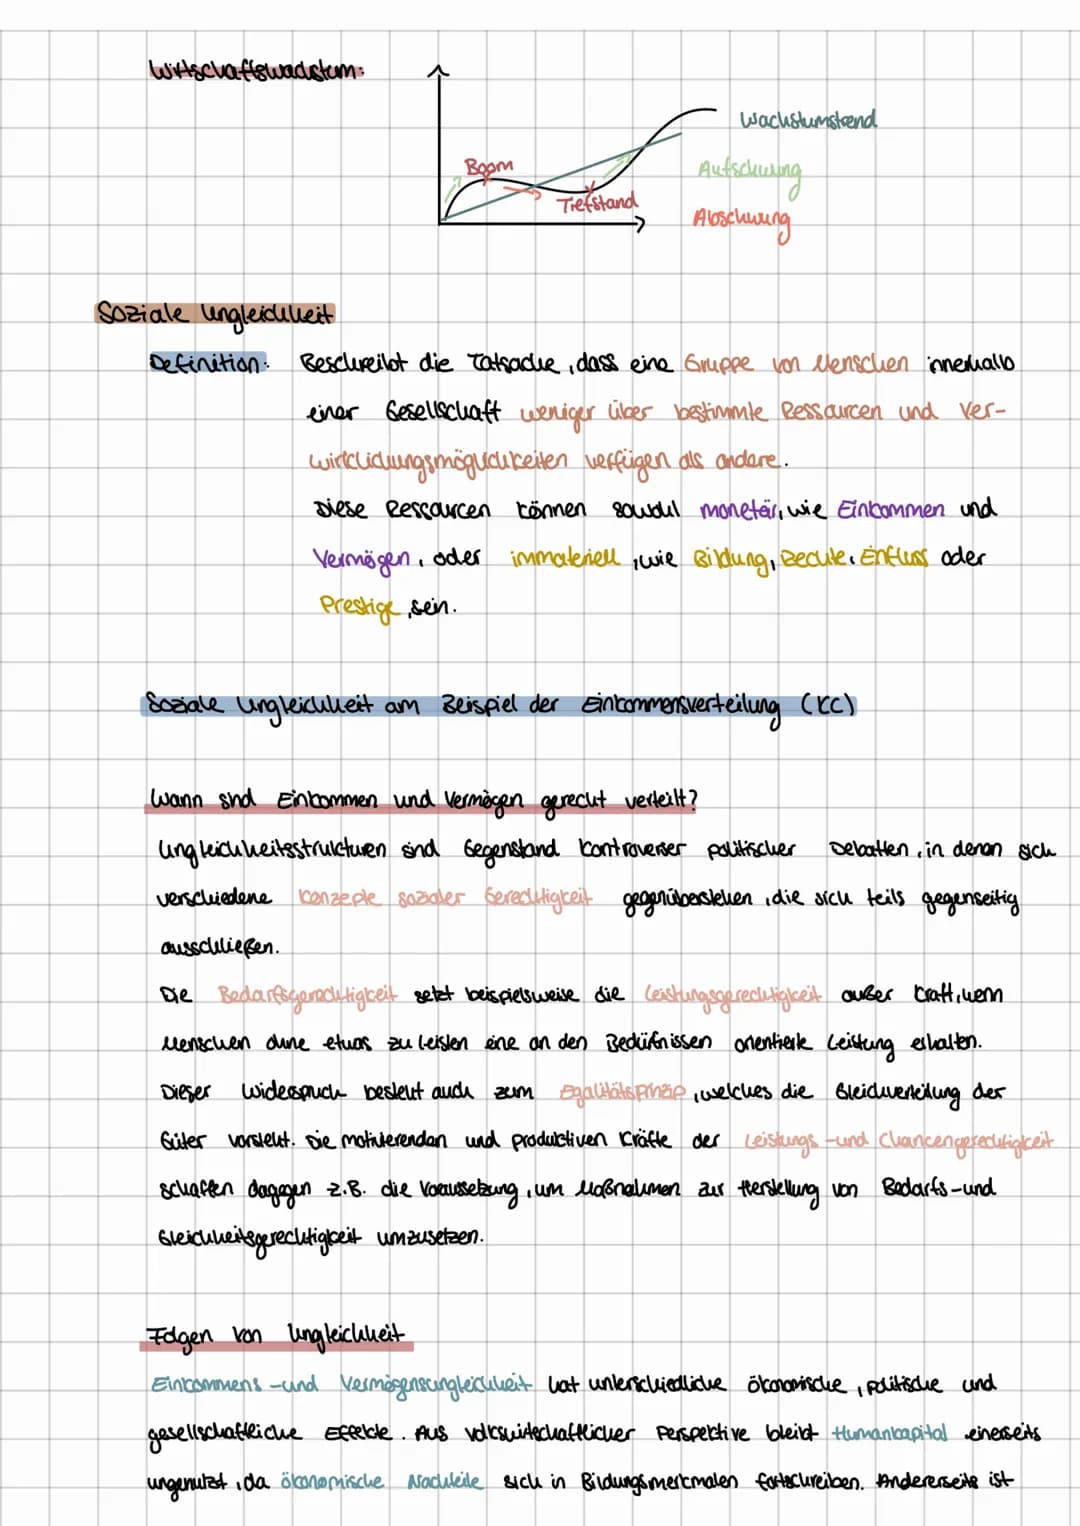 Wirtschaftswachstum:
Wachstumstrend
Boom
Aufschwung
Tiefstand
Abschwung
Soziale Ungleichheit
Definition: Beschreibt die Tatsache, dass eine Gruppe von Menschen innerhalb
einer Gesellschaft weniger über bestimmte Ressourcen und Ver-
wirklichungsmöglichkeiten verfügen als andere.
Diese Ressourcen können sowohl monetär, wie Einkommen und
Vermögen, oder immateriell, wie Bildung, Rechte, Einfluss oder
Prestige, sein.
Soziale Ungleichheit am Beispiel der Einkommensverteilung (KC)
Wann sind Einkommen und Vermögen gerecht verteilt?
Ungleichheitsstrukturen sind Gegenstand kontroverser politischer Debatten, in denen sich
verschiedene Konzepte sozialer Gerechtigkeit gegenüberstehen, die sich teils gegenseitig
ausschließen.
Die Bedarfsgerechtigkeit setzt beispielsweise die Leistungsgerechtigkeit außer Kraft, wenn
Menschen ohne etwas zu leisten eine an den Bedürfnissen orientierte Leistung erhalten.
Dieser Widerspruch besteht auch zum Egalitätsprinzip, welches die Gleichverteilung der
Güter vorsieht. Die motivierenden und produktiven Kräfte der Leistungs-und Chancengerechtigkeit
schaffen dagegen z.B. die Voraussetzung, um Maßnahmen zur Herstellung von Bedarfs-und
Gleichheitsgerechtigkeit umzusetzen.
Folgen von Ungleichheit
Einkommens-und Vermögensungleichheit hat unterschiedliche ökonomische, politische und
gesellschaftliche Effekte. Aus volkswirtschaftlicher Perspektive bleibt Humankapital einerseits
ungenutzt, da ökonomische Nachteile sich in Bildungsmerkmalen fortschreiben. Andererseits ist